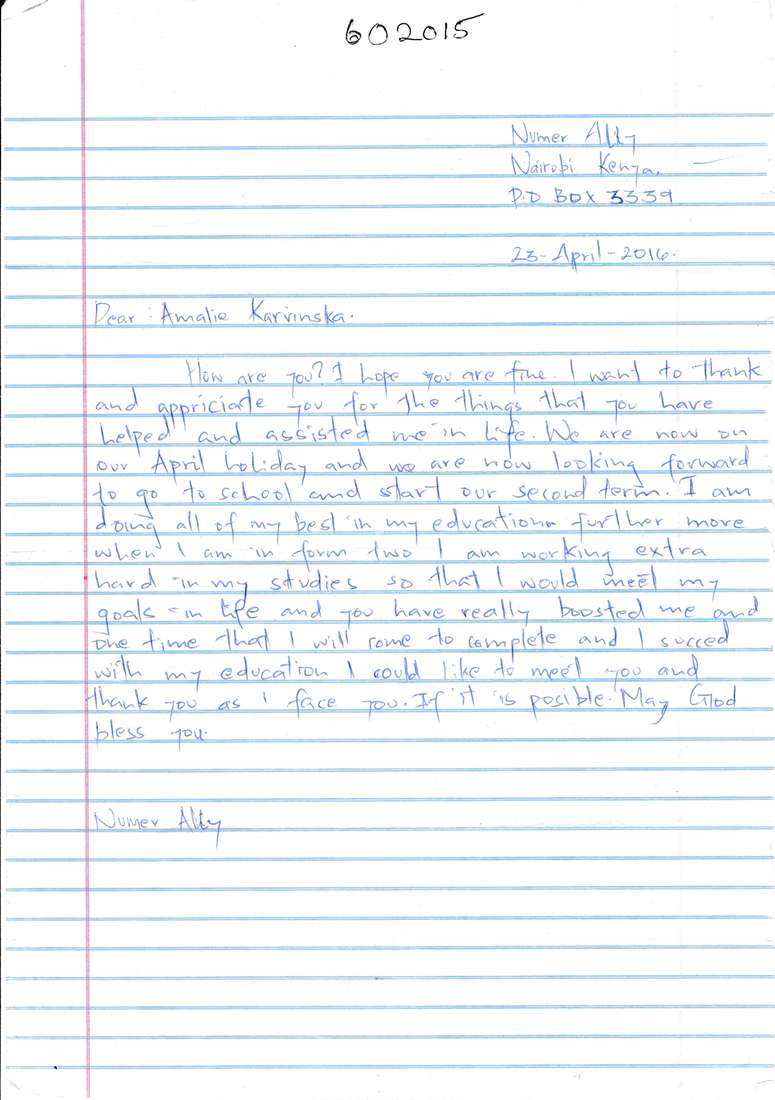 602015
Numer Ally
Nairobi Kenya.
P.O BOX 3339
23-April-2016.
Dear : Amalie Karvinska.
How are you? I hope you are fine. I want to thank
and appriciate you for the things that you have
helped and assisted me in life. We are now on
our April holiday and we are now looking forward
to go to school and start our second term. I am
doing all of my best in my education further more
when I am in form two I am working extra
hard in my studies so that I would meet my
goals in life and you have really boosted me and
one time that I will come to complete and I succed
with my education I could like to meet you and
thank you as I face you. If it is posible. May God
bless you.
Numer Ally